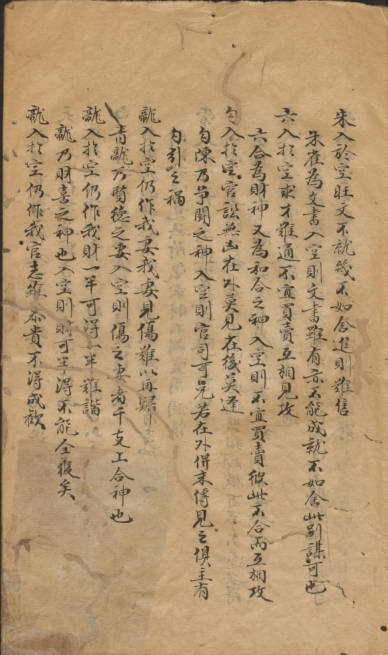 朱入於空旺文不就幾不如舍進則難售
朱雀為文書入空則文書雖有亦不能成就不如舍此別謀可也
六入於空求才难通不宜買賣互相見攻
六合為財神又為和合之神入空則不宜買賣彼此不合而互相攻
勾入於空官訟無凶在外莫見在後莫逢
勾陳乃爭鬪之神入空則官司可免若在外併未傳見之俱主有
勾引之禍
龍入於空仍作我妻我妻見傷难以再歸
青龍乃賢德之妻入空則傷之妻者干支上合神也
龍入於空仍作我財一半可得一半難諧
龍乃財喜之神也入空則財可半得不能全獲矣
龍入於空仍作我官志雖恭貴不得成歡